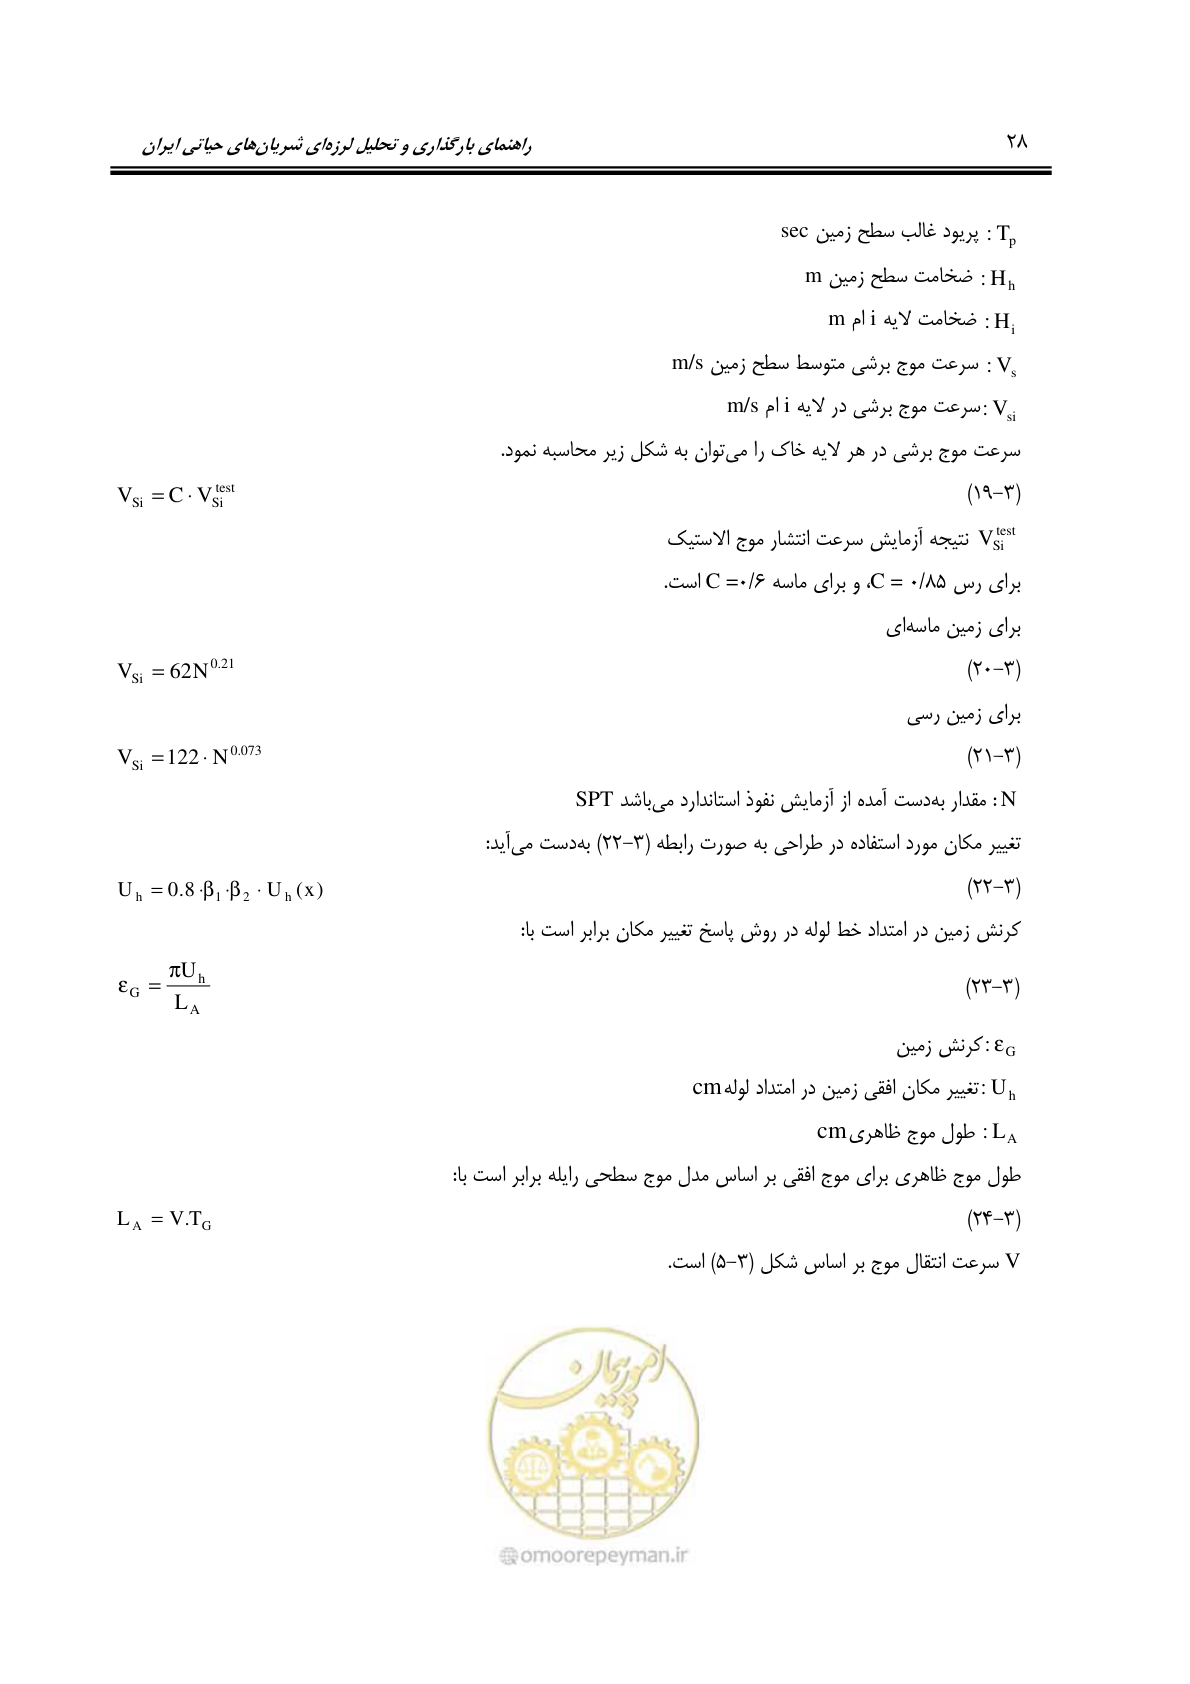 ۲۸ راهنمای بارگذاری و تحلیل لرزه‌ای شریان‌های حیاتی ایران
T_p : پریود غالب سطح زمین sec
H_h : ضخامت سطح زمین m
H_i : ضخامت لایه i ام m
V_s : سرعت موج برشی متوسط سطح زمین m/s
V_si :سرعت موج برشی در لایه i ام m/s
سرعت موج برشی در هر لایه خاک را می‌توان به شکل زیر محاسبه نمود.
(۳-۱۹) V_Si = C · V_Si^test
V_Si^test نتیجه آزمایش سرعت انتشار موج الاستیک
برای رس C = ۰/۸۵، و برای ماسه C =۰/۶ است.
برای زمین ماسه‌ای
(۳-۲۰) V_Si = 62N^0.21
برای زمین رسی
(۳-۲۱) V_Si = 122 · N^0.073
N : مقدار به‌دست آمده از آزمایش نفوذ استاندارد می‌باشد SPT
تغییر مکان مورد استفاده در طراحی به صورت رابطه (۳-۲۲) به‌دست می‌آید:
(۳-۲۲) U_h = 0.8 ·β_1 ·β_2 · U_h (x)
کرنش زمین در امتداد خط لوله در روش پاسخ تغییر مکان برابر است با:
(۳-۲۳) ε_G = πU_h / L_A
ε_G :کرنش زمین
U_h :تغییر مکان افقی زمین در امتداد لوله cm
L_A : طول موج ظاهری cm
طول موج ظاهری برای موج افقی بر اساس مدل موج سطحی رایله برابر است با:
(۳-۲۴) L_A = V.T_G
V سرعت انتقال موج بر اساس شکل (۳-۵) است.
امور پیمان
@omoorepeyman.ir